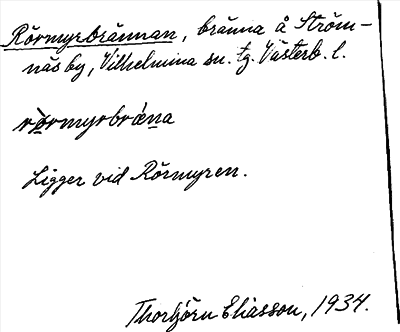 Rörmyrbrännan, bränna å Ström-
näs by, Vilhelmina sn. tg. Västerb. l.
rö̀rmyrbräna
Ligger vid Rörmyren.
Thorbjörn Eliasson, 1934.